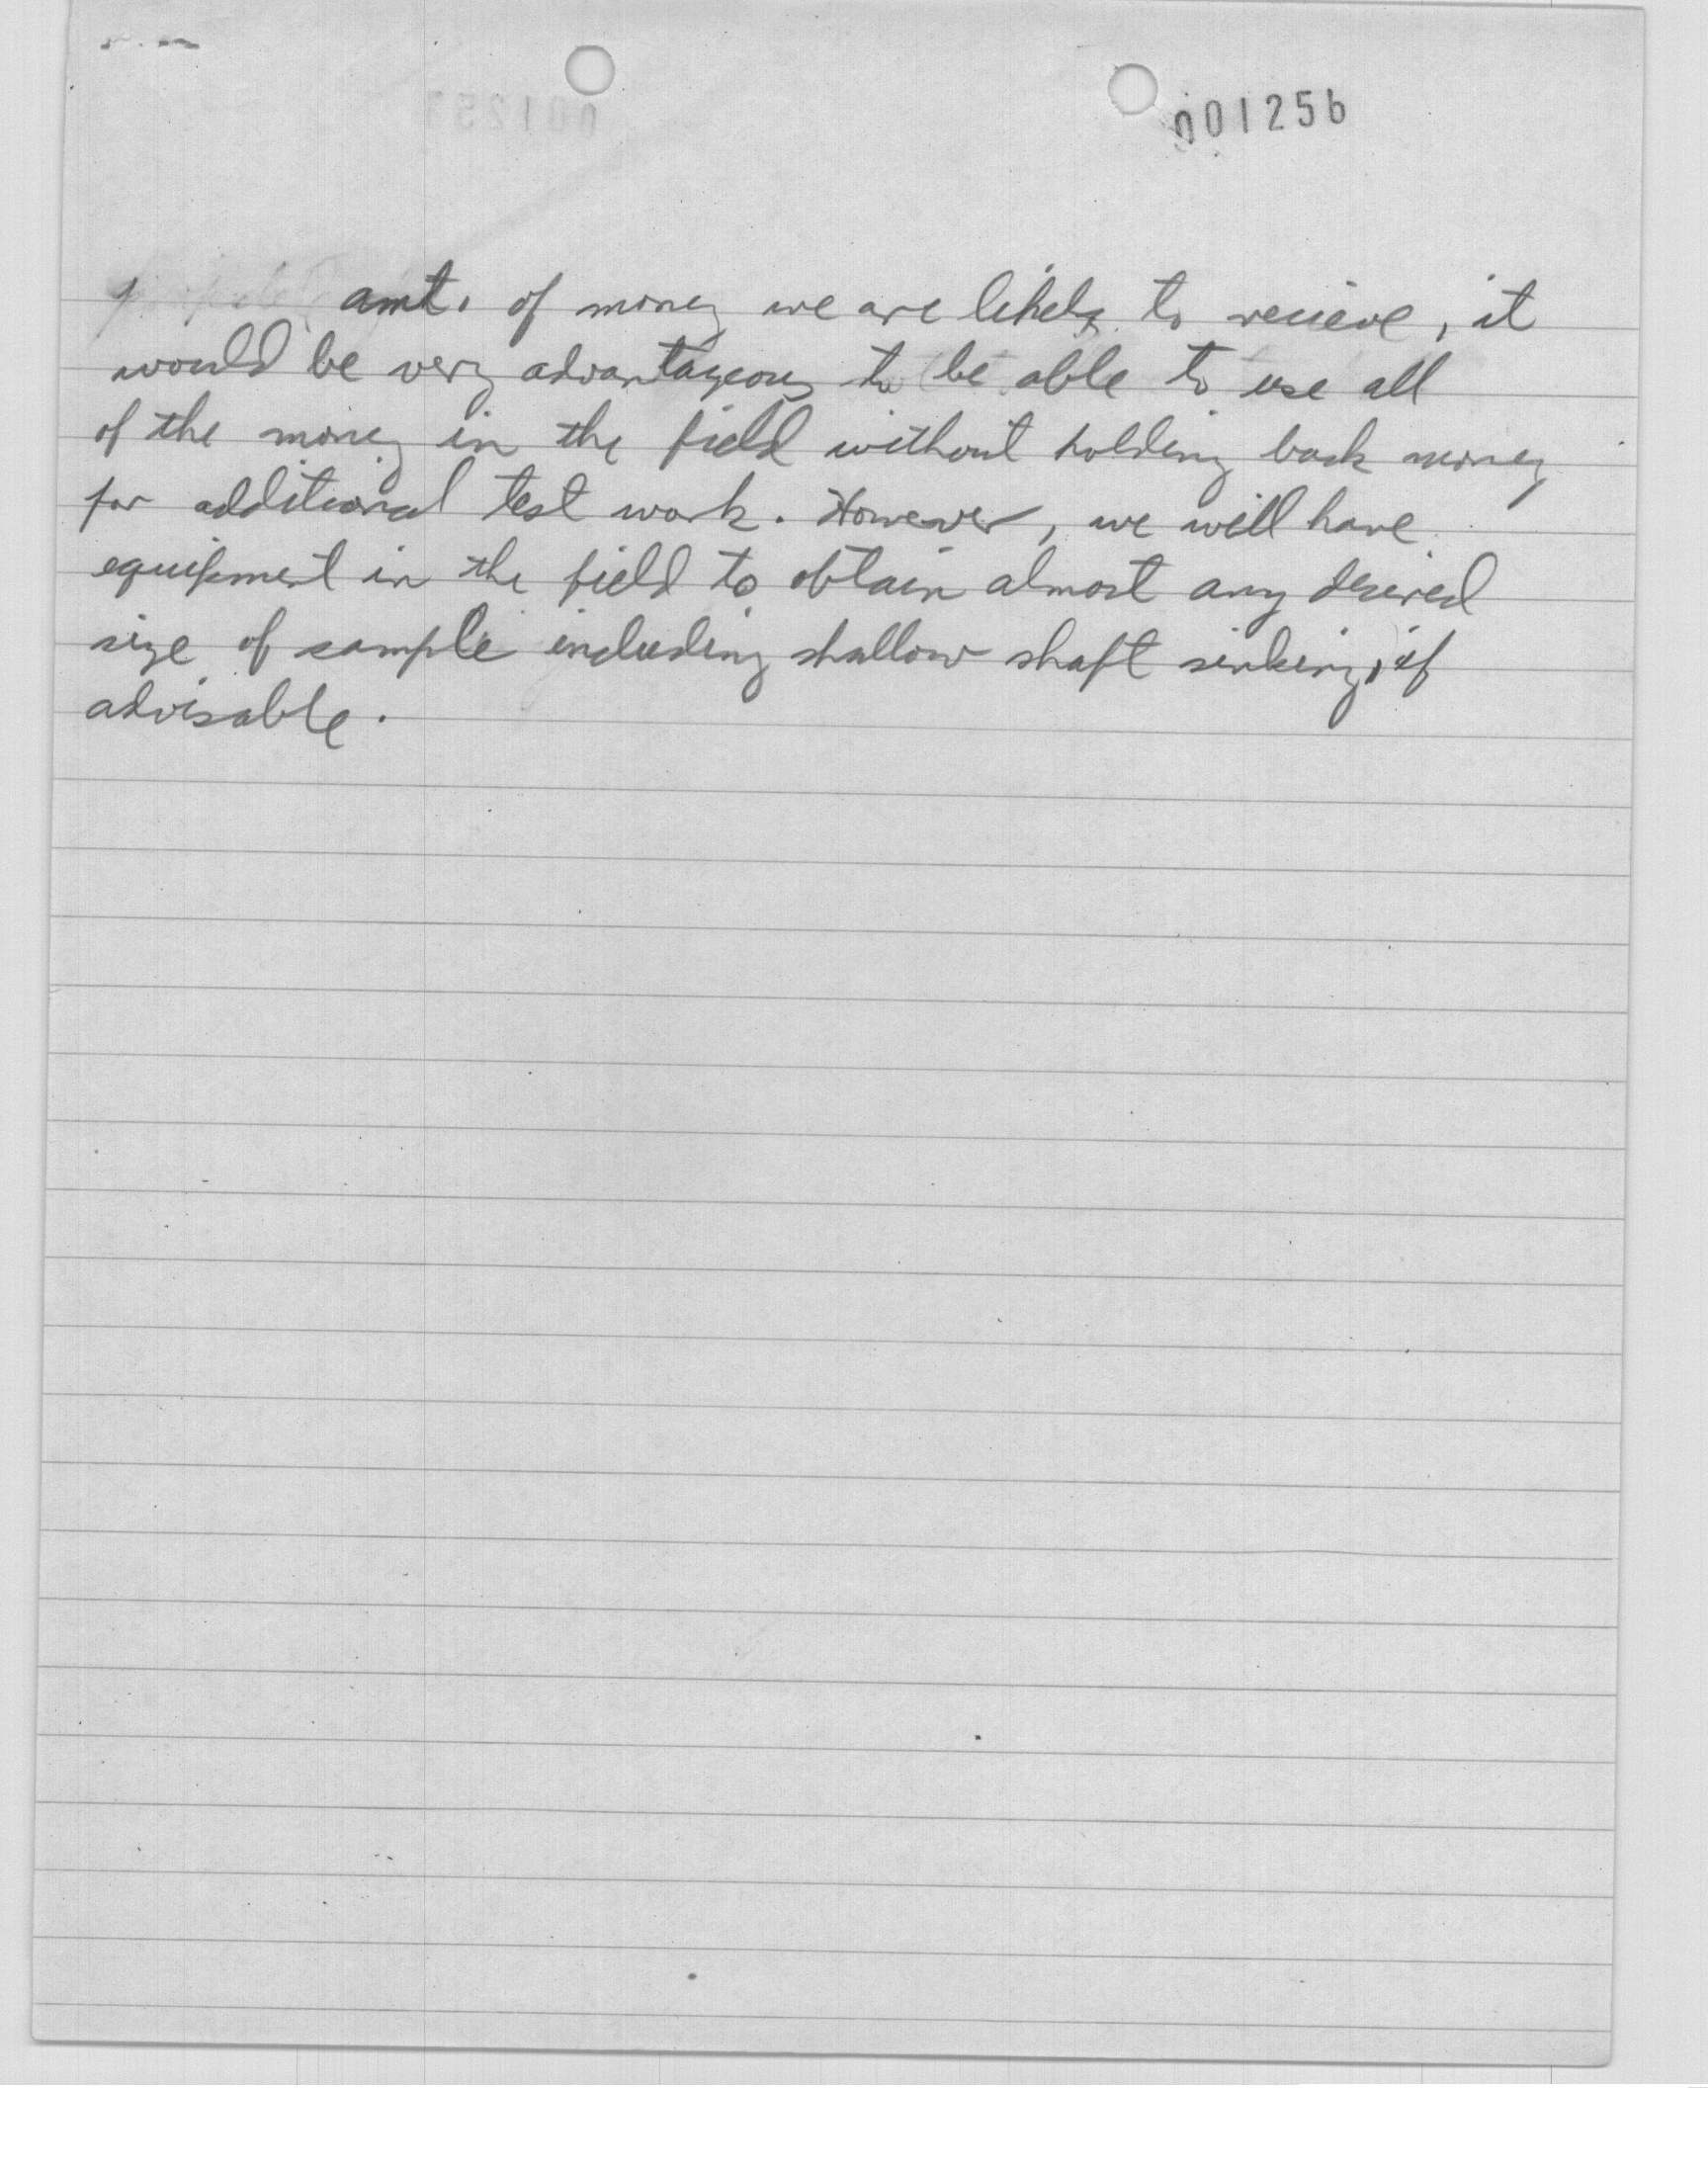 001256
amt. of money we are likely to recieve, it
would be very advantageous to be able to use all
of the money in the field without holding back money
for additional test work. However, we will have
equipment in the field to obtain almost any desired
size of sample including shallow shaft sinking, if
advisable.